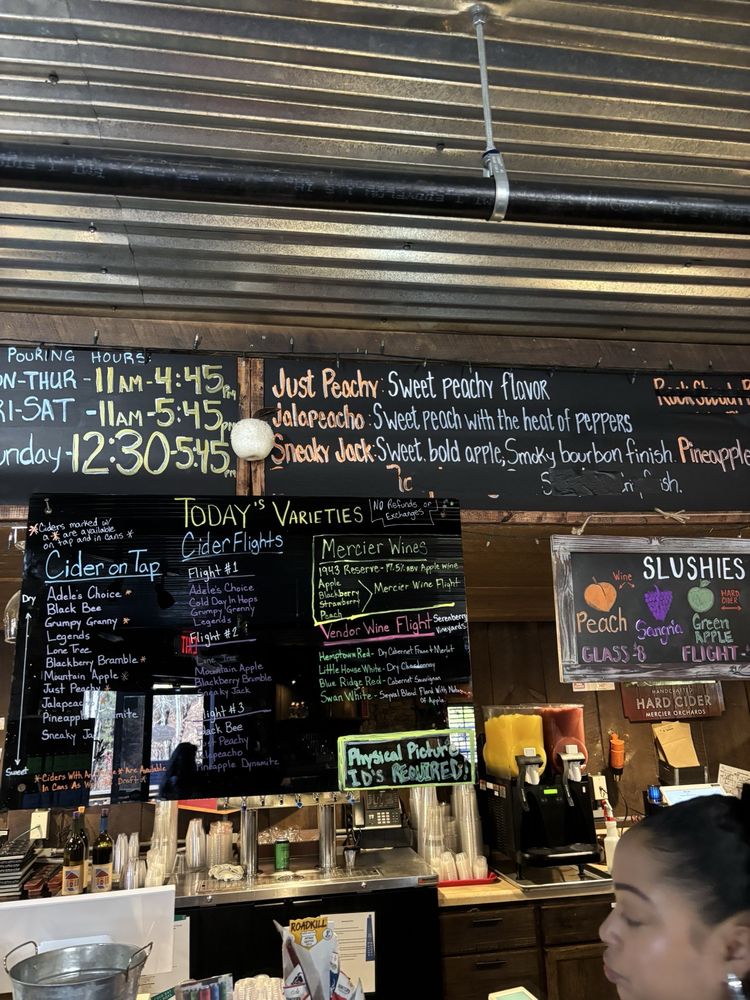 POURING HOURS:
N-THUR - 11 AM - 4:45 PM
RI-SAT - 11 AM - 5:45 PM
unday - 12:30 - 5:45 PM
Just Peachy: Sweet peachy flavor
Jalapeacho: Sweet peach with the heat of peppers
Sneaky Jack: Sweet, bold apple, Smoky bourbon finish. Pineapple
*Ciders marked w/
a * are available
on tap and in cans *
TODAY'S VARIETIES
NO Refunds or
Exchanges
Cider on Tap
Dry
Adele's Choice *
Black Bee
Grumpy Granny *
Legends
Lone Tree
Blackberry Bramble *
Mountain Apple *
Just Peachy
Jalapeac
Pineapp mite
Sneaky Ja
Sweet
*Ciders With A * Are Available
In Cans As W Draft *
Cider Flights
Flight #1
Adele's Choice
Cold Day In Hops
Grumpy Granny
Legends
Flight #2
Lone Tree
Mountain Apple
Blackberry Bramble
Sneaky Jack
light #3
lack Bee
ust Peachy
Jalapeacho
Pineapple Dynamite
Mercier Wines
1943 Reserve - 17.5% ABV Apple wine
Apple
Blackberry
Strawberry
Peach
Mercier Wine Flight
Vendor Wine Flight
Serenberry
Vineyards
Hemptown Red - Dry Cabernet Franc & Merlot
Little House White - Dry Chardonnay
Blue Ridge Red - Cabernet Sauvignon
Swan White - Seyval Blend
of Apple
Physical Picture
ID's REQUIRED!
SLUSHIES
Wine
Peach
Sangria
Green
APPLE
HARD
CIDER
GLASS - 8
FLIGHT -
HANDCRAFTED
HARD CIDER
MERCIER ORCHARDS
ROADKILL